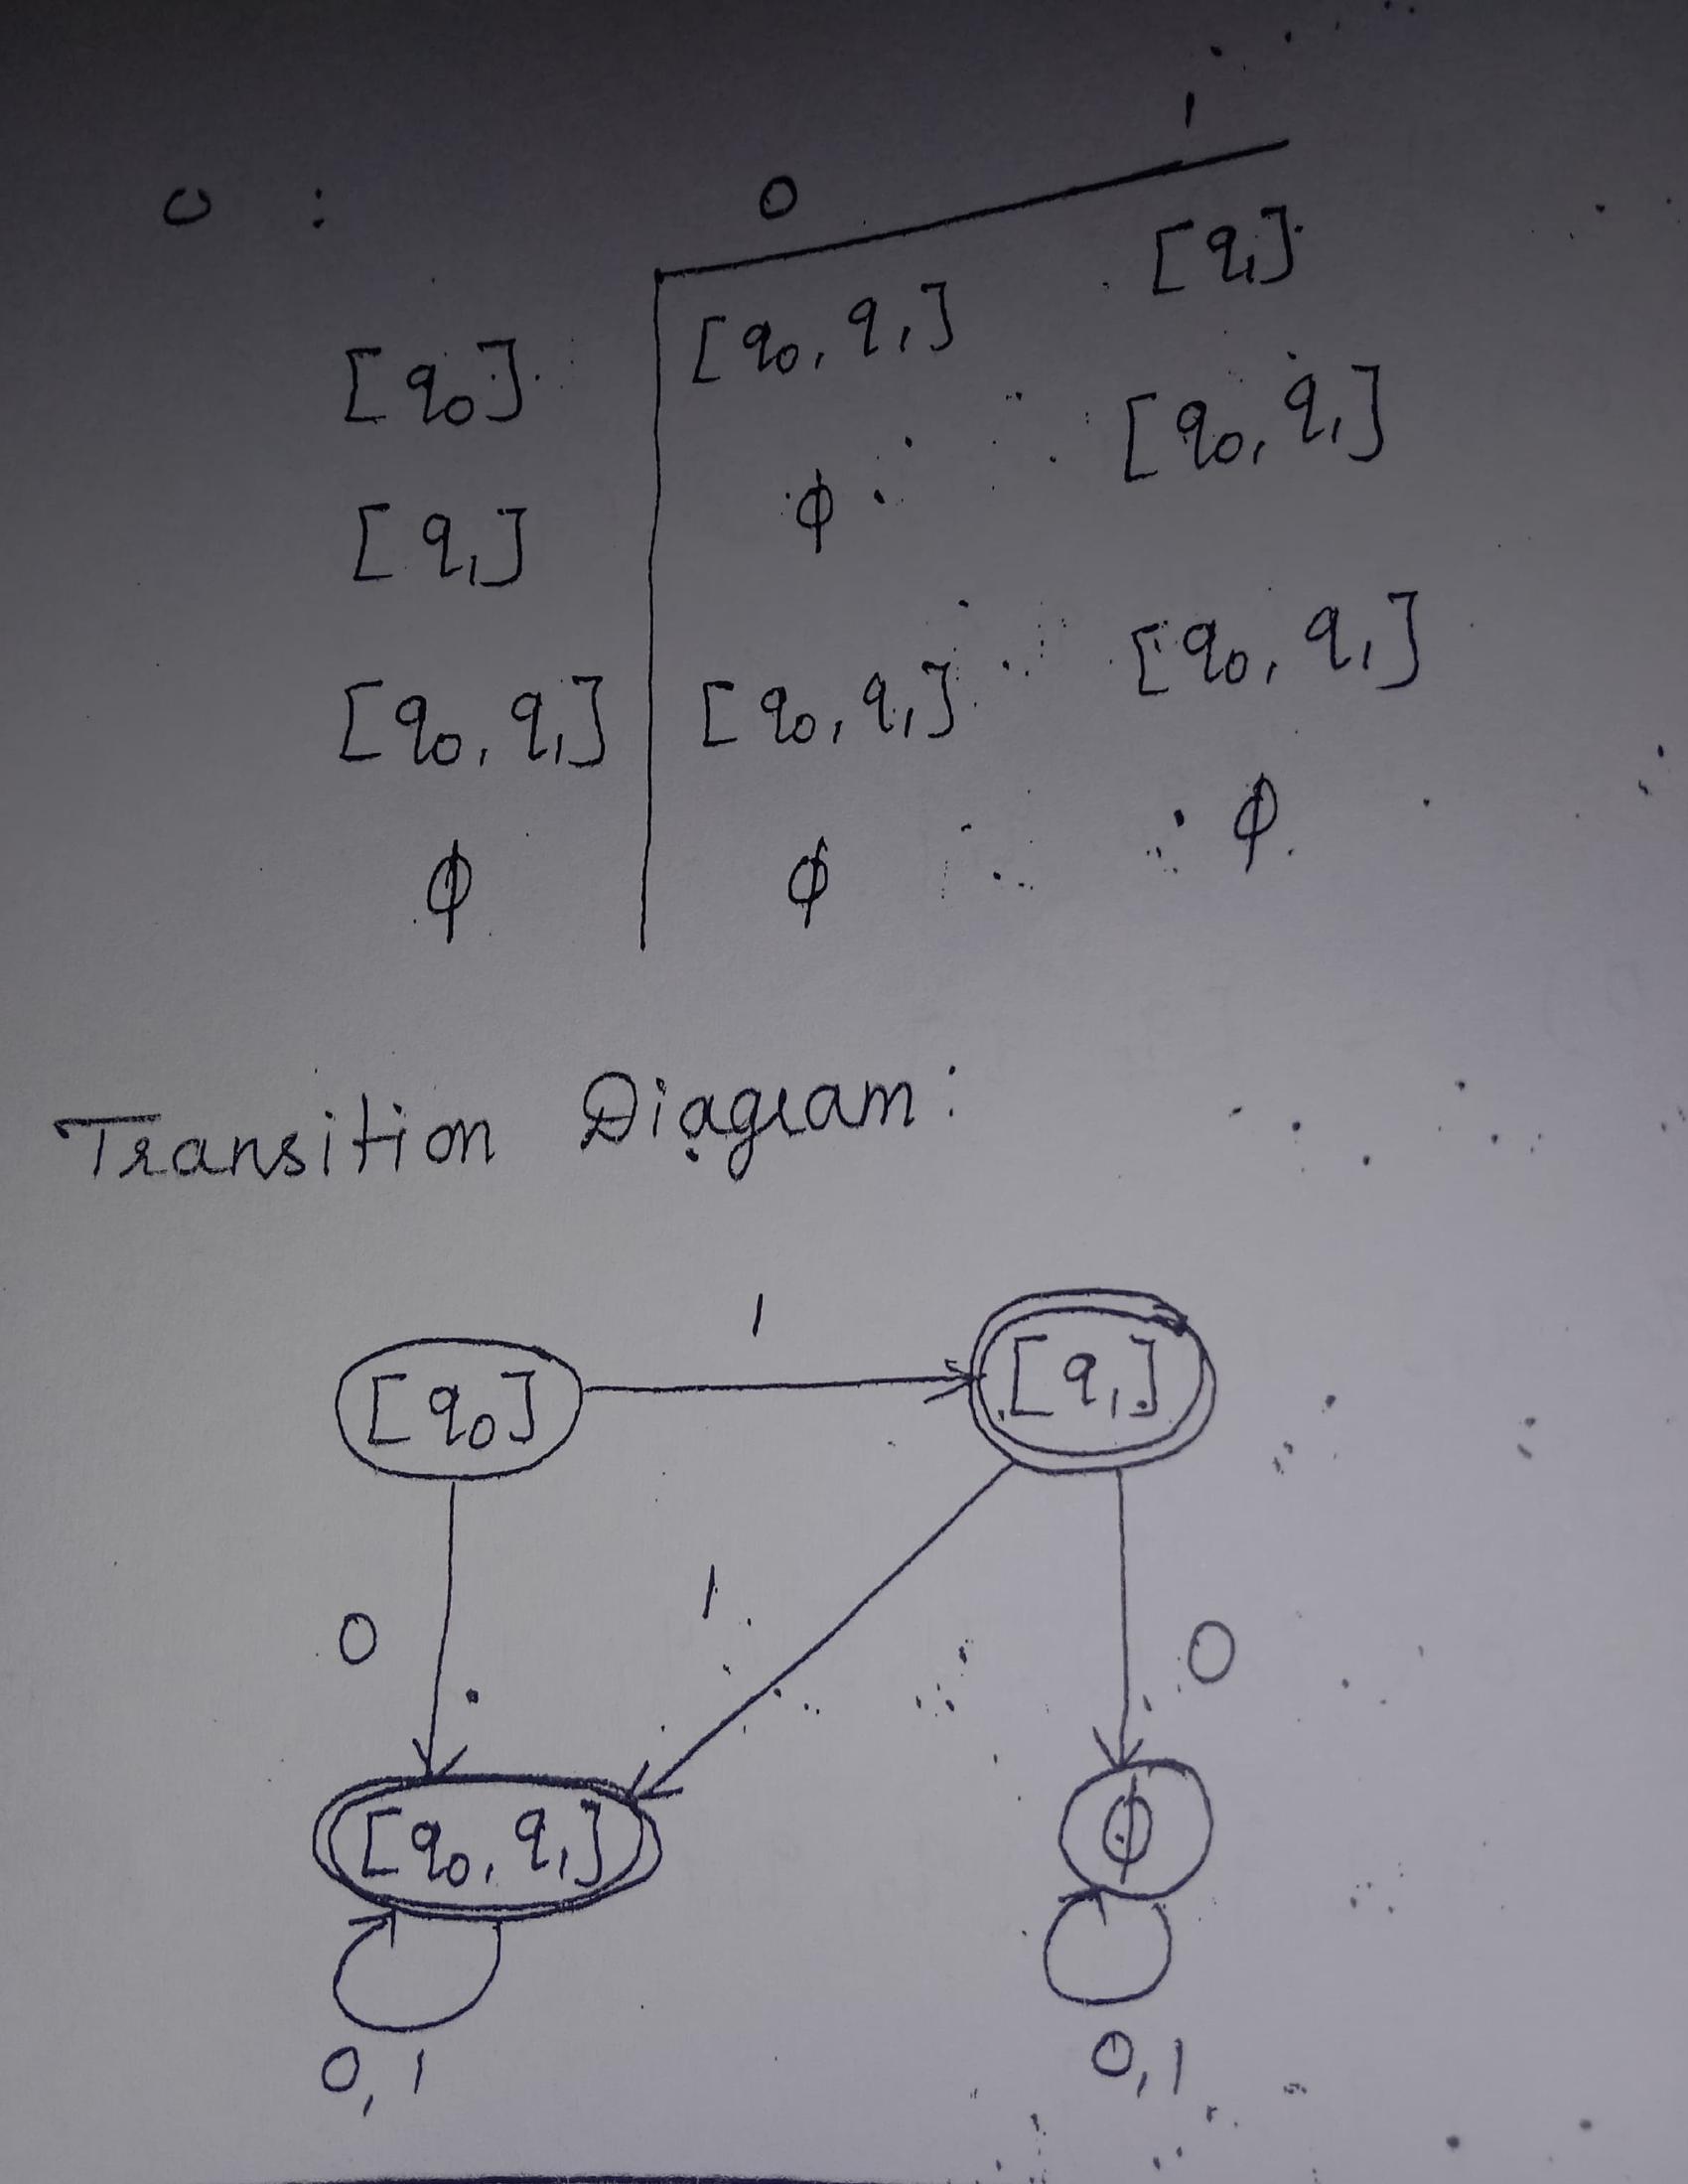 δ : 0 1
[q₀] [q₀, q₁] [q₁]
[q₁] ϕ [q₀, q₁]
[q₀, q₁] [q₀, q₁] [q₀, q₁]
ϕ ϕ ϕ
Transition Diagram:
1
[q₀] [q₁]
0 1 0
[q₀, q₁] ϕ
0, 1 0, 1